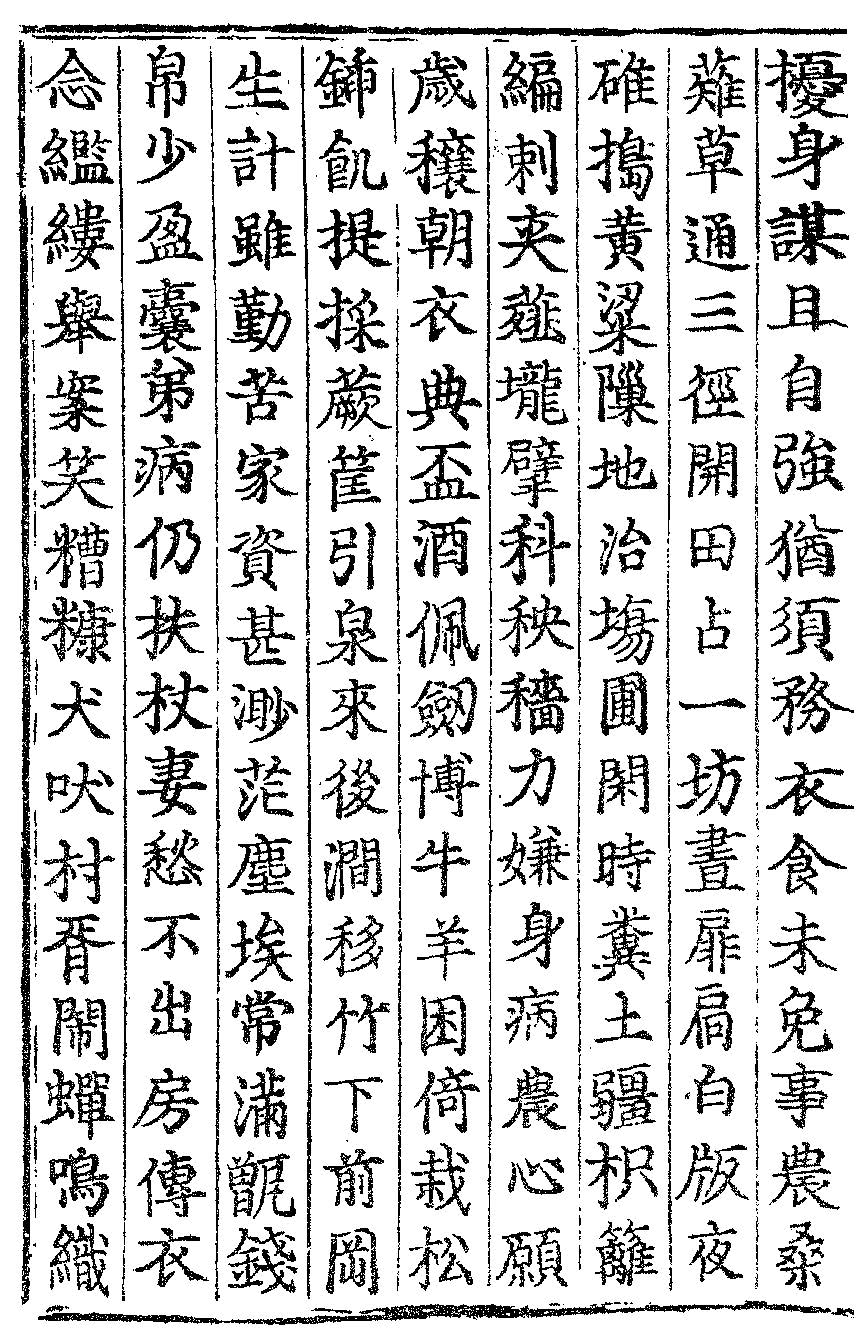 擾身謀且自強猶須務衣食未免事農桑
薙草通三徑開田占一坊晝扉扃白版夜
碓搗黃粱隟地治塲圃閑時糞土疆枳籬
編刺夾薤壠擘科秧穡力嫌身病農心願
歲穰朝衣典盃酒佩劒博牛羊困倚栽松
鍤飢提採蕨筐引泉來後澗移竹下前岡
生計雖勤苦家資甚渺茫塵埃常滿甑錢
帛少盈囊弟病仍扶杖妻愁不出房傳衣
念繿縷舉案笑糟糠犬吠村胥鬧蟬鳴織